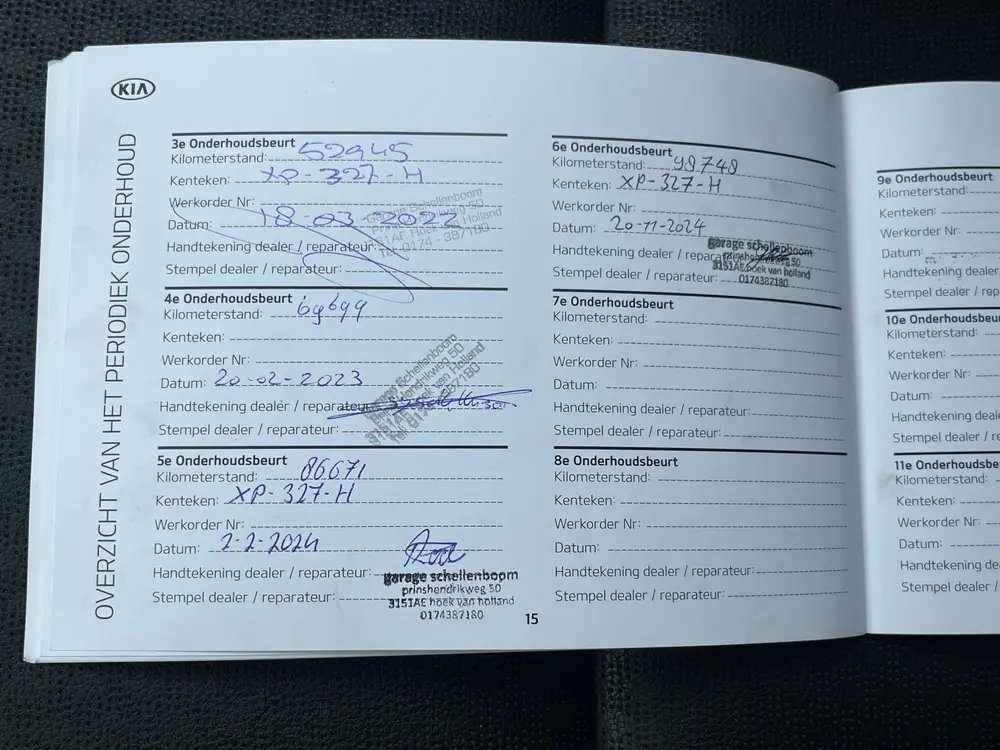 KIA
OVERZICHT VAN HET PERIODIEK ONDERHOUD
3e Onderhoudsbeurt
Kilometerstand: 52945
Kenteken: XP-327-H
Werkorder Nr:
Datum: 18-03-2022
Handtekening dealer / reparateur:
Stempel dealer / reparateur:
Garage Schellenboom
Prins Hendrikweg 50
3151AE Hoek van Holland
Tel: 0174 - 387180
4e Onderhoudsbeurt
Kilometerstand: 69699
Kenteken:
Werkorder Nr:
Datum: 20-02-2023
Handtekening dealer / reparateur:
Stempel dealer / reparateur:
Garage Schellenboom
Prins Hendrikweg 50
3151AE Hoek van Holland
Tel: 0174 387180
5e Onderhoudsbeurt
Kilometerstand: 86671
Kenteken: XP-327-H
Werkorder Nr:
Datum: 2-2-2024
Handtekening dealer / reparateur:
Stempel dealer / reparateur:
garage schellenboom
prinshendrikweg 50
3151AE hoek van holland
0174387180
15
6e Onderhoudsbeurt
Kilometerstand: 98748
Kenteken: XP-327-H
Werkorder Nr:
Datum: 20-11-2024
Handtekening dealer / reparateur:
Stempel dealer / reparateur:
garage schellenboom
prinshendrikweg 50
3151AE hoek van holland
0174387180
7e Onderhoudsbeurt
Kilometerstand:
Kenteken:
Werkorder Nr:
Datum:
Handtekening dealer / reparateur:
Stempel dealer / reparateur:
8e Onderhoudsbeurt
Kilometerstand:
Kenteken:
Werkorder Nr:
Datum:
Handtekening dealer / reparateur:
Stempel dealer / reparateur:
9e Onderhoudsbeurt
Kilometerstand:
Kenteken:
Werkorder Nr:
Datum:
Handtekening dealer
Stempel dealer / rep
10e Onderhoudsbeur
Kilometerstand:
Kenteken:
Werkorder Nr:
Datum:
Handtekening dealer
Stempel dealer / re
11e Onderhoudsbe
Kilometerstand:
Kenteken:
Werkorder Nr:
Datum:
Handtekening de
Stempel dealer /